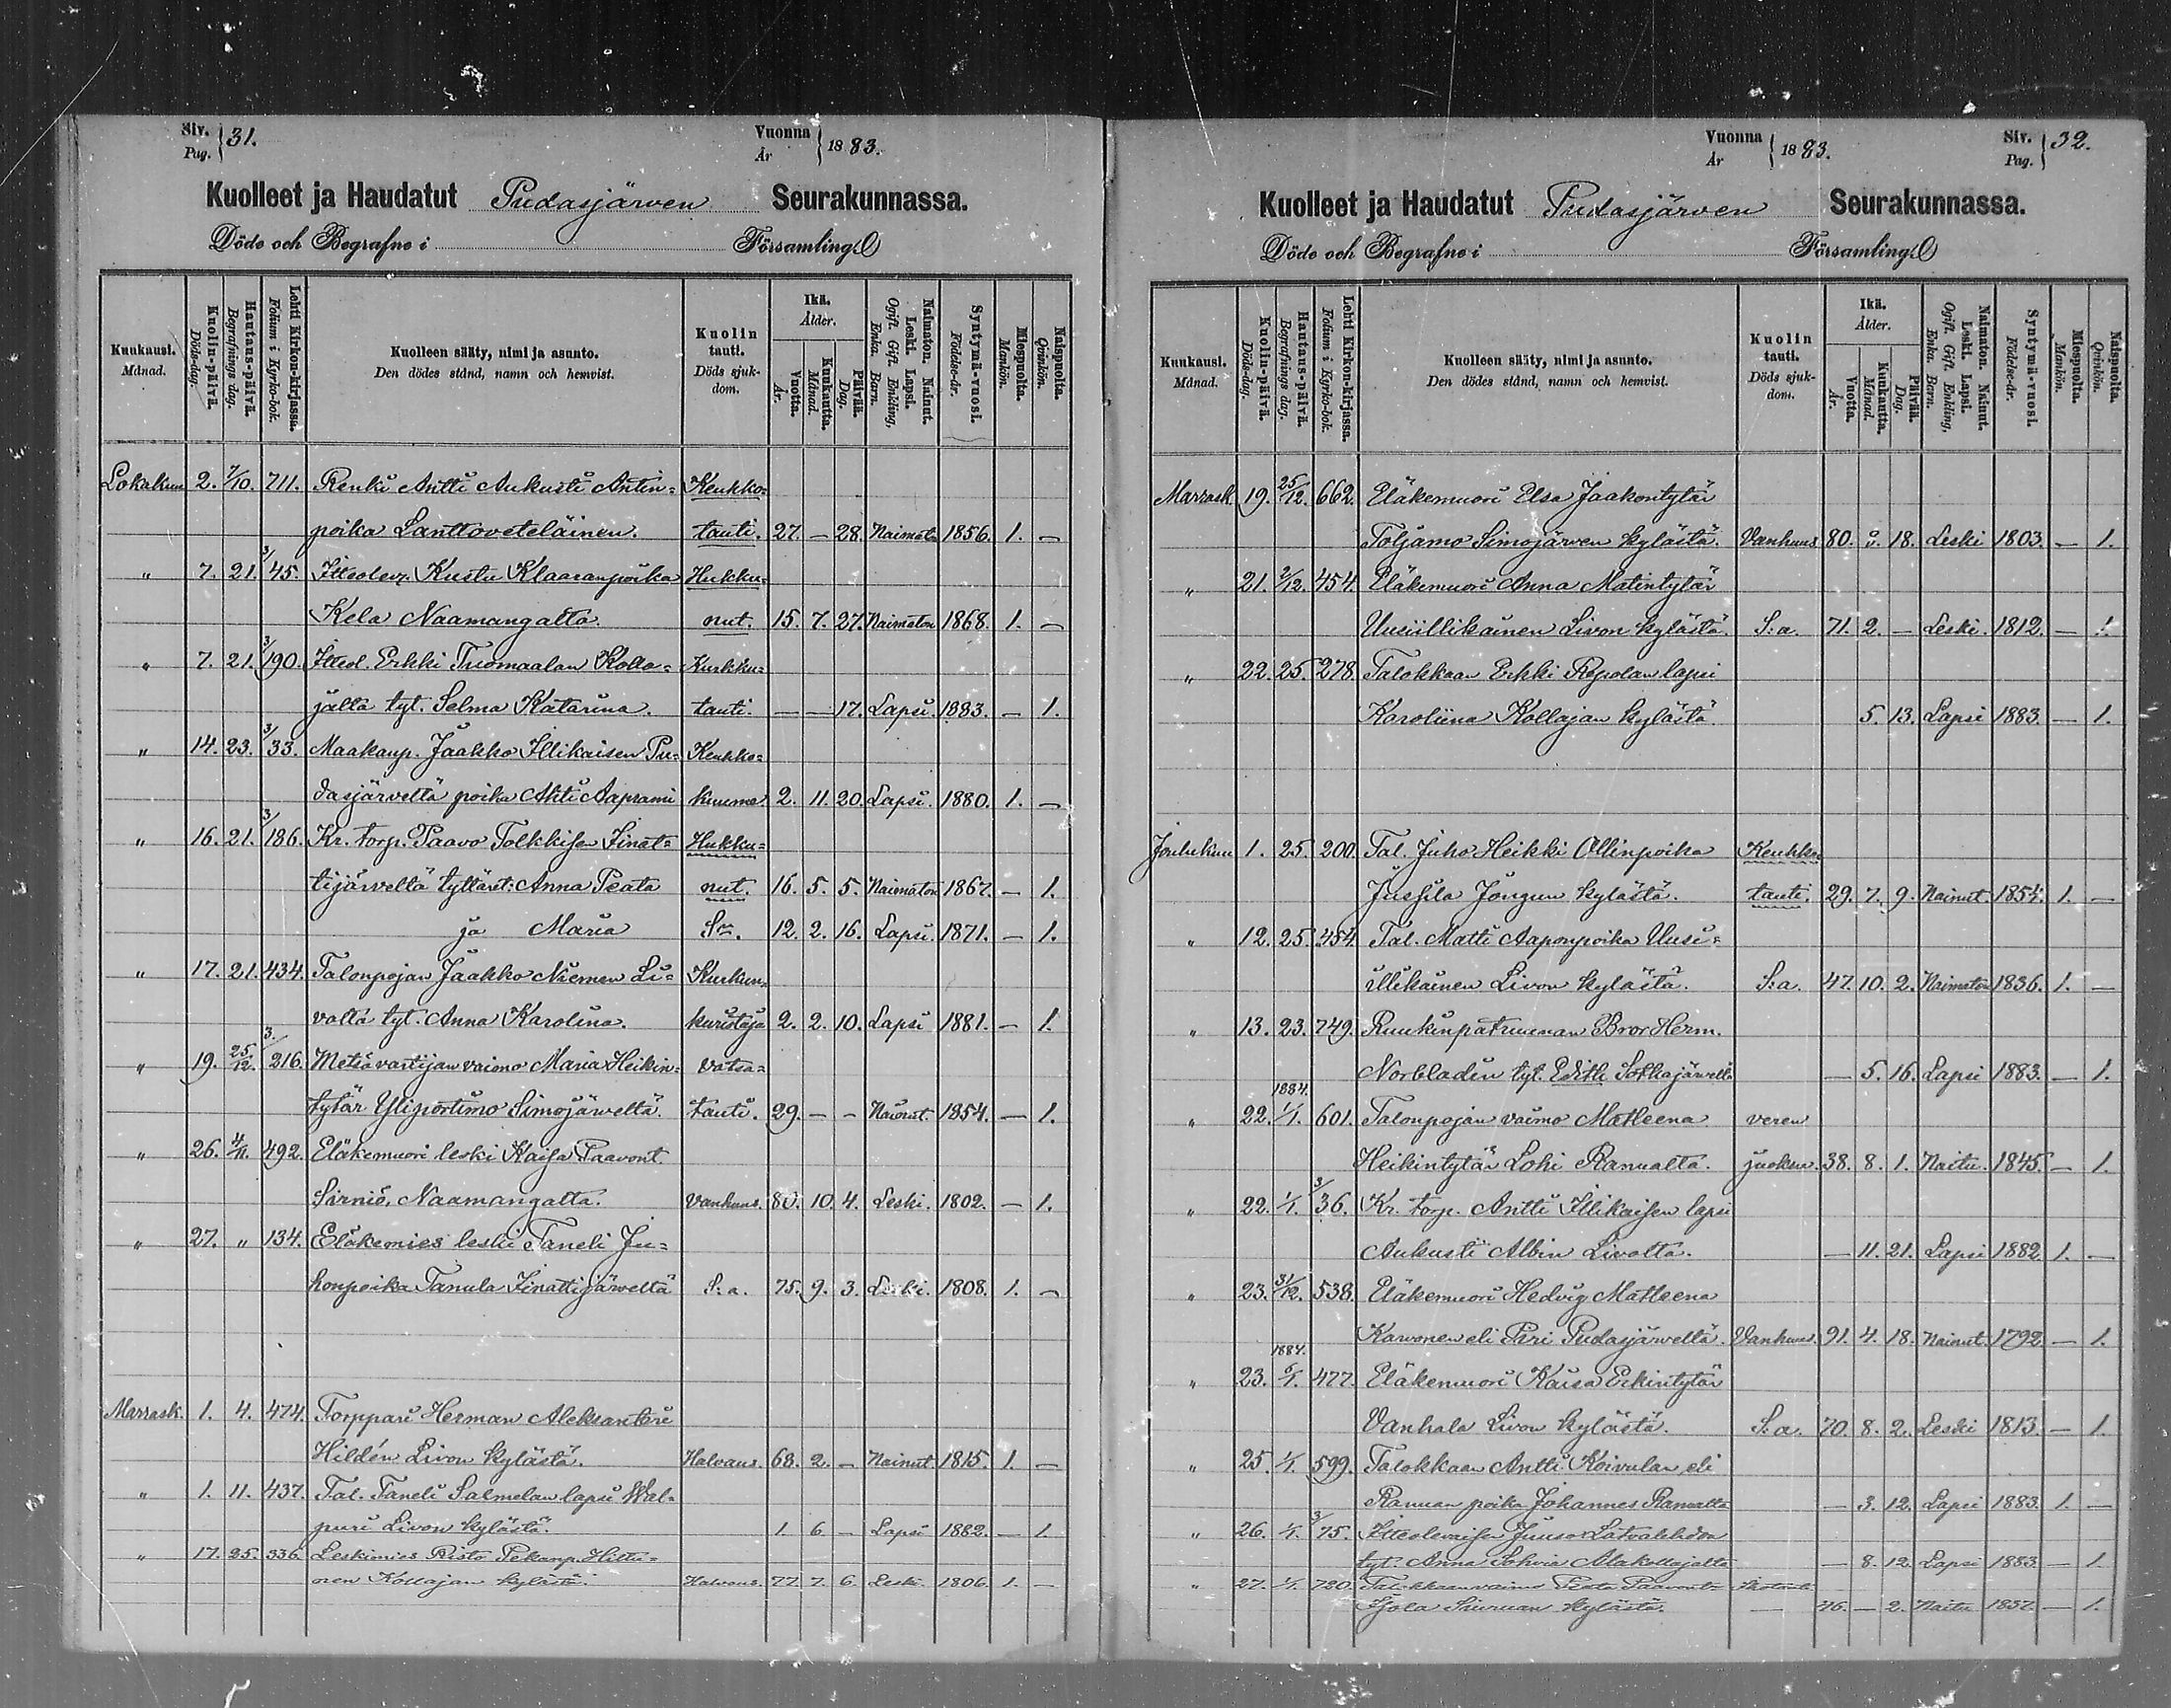 Siv. Pag. 31.
Vuonna År 1883.
Kuolleet ja Haudatut Pudasjärven Seurakunnassa.
Döde och Begrafne i Församling.
Kuukausi. Månad.
Kuolin-päivä. Döds-dag.
Hautaus-päivä. Begrafnings dag.
Lehti Kirkon-kirjassa. Folium i Kyrko-bok.
Kuolleen sääty, nimi ja asunto. Den dödes stånd, namn och hemvist.
Kuolin tauti. Döds sjukdom.
Ikä. Ålder.
Vuotta. År.
Kuukautta. Månad.
Päivää. Dag.
Naimaton. Nainut. Leski. Lapsi. Ogift. Gift. Enkling, Enka. Barn.
Syntymä-vuosi. Födelse-år.
Miespuolta. Mankön.
Naispuolta. Qvinkön.
Lokakuu 2. 7/10. 711. Renki Antti Aukusti Antin= Keuhko=
poika Lanttoveteläinen. tauti. 27. — 28. Naimaton 1856. 1. —
" 7. 21. 3/45. Itseolev. Kustu Klaaranpoika Hukku=
Kela Naamangalta. nut. 15. 7. 27. Naimaton 1868. 1. —
" 7. 21. 3/190. Itseol. Erkki Tuomaalan Kolla= Kurkku=
jalta tyt. Selma Katarina. tauti. — — 17. Lapsi. 1883. — 1.
" 14. 23. 3/33. Maakaup. Jaakko Illikaisen Pu= Keuhko=
dasjärveltä poika Ahti Aaprami kuume 2. 11. 20. Lapsi. 1880. 1. —
" 16. 21. 3/186. Kr. torp. Paavo Tolkkisen Iinat= Hukku=
tijärveltä tyttäret: Anna Peata nut. 16. 5. 5. Naimaton 1867. — 1.
ja Maria Sm. 12. 2. 16. Lapsi. 1871. — 1.
" 17. 21. 434. Talonpojan Jaakko Niemen Li= Kurkun=
valta tyt. Anna Karolina. kuristaja 2. 2. 10. Lapsi 1881. — 1.
" 19. 25/12. 3./216. Metsävartijan vaimo Maria Heikin= Vatsa=
tytär Yliportimo Simojärveltä. tauti. 29. — — Nainut. 1854. — 1.
" 26. 4/11. 492. Eläkemuori leski Kaisa Paavont.
Särniö, Naamangalta. Vanhuus. 80. 10. 4. Leski. 1802. — 1.
" 27. " 134. Eläkemies leski Taneli Ju=
honpoika Tanula Iinattijärveltä S:a. 75. 9. 3. Leski. 1808. 1. —
Marrask. 1. 4. 474. Torppari Herman Aleksanteri
Hildén Livon kylästä. Halvaus. 68. 2. — Nainut 1815. 1. —
" 1. 11. 437. Tal. Taneli Salmelan lapsi Wal=
puri Livon kylästä. 1. 6. — Lapsi 1882. — 1
" 17. 25. 336. Leskimies Risto Pekanp. Hiltu=
nen Kollajan kylästä. Halvaus. 77. 7. 6. Leski. 1806. 1. —
Vuonna År 1883.
Siv. Pag. 32.
Kuolleet ja Haudatut Pudasjärven Seurakunnassa.
Döde och Begrafne i Församling.
Kuukausi. Månad.
Kuolin-päivä. Döds-dag.
Hautaus-päivä. Begrafnings dag.
Lehti Kirkon-kirjassa. Folium i Kyrko-bok.
Kuolleen sääty, nimi ja asunto. Den dödes stånd, namn och hemvist.
Kuolin tauti. Döds sjukdom.
Ikä. Ålder.
Vuotta. År.
Kuukautta. Månad.
Päivää. Dag.
Naimaton. Nainut. Leski. Lapsi. Ogift. Gift. Enkling, Enka. Barn.
Syntymä-vuosi. Födelse-år.
Miespuolta. Mankön.
Naispuolta. Qvinkön.
Marrask. 19. 25/12. 662. Eläkemuori Elsa Jaakontytär
Töljamo Simojärven kylästä. Vanhuus 80. 18. Leski 1803. — 1.
" 21. 2/12. 454. Eläkemuori Anna Matintytär
Uusiillikainen Livon kylästä. S:a. 71. 2. — Leski. 1812. — 1.
" 22. 25. 278. Talokkaan Erkki Repolan lapsi
Karoliina Kollajan kylästä. 5. 13. Lapsi 1883. — 1.
Joulukuu 1. 25. 200. Tal. Juho Heikki Ollinpoika Keuhko
Jussila Jongun kylästä. tauti. 29. 7. 9. Nainut. 1854. 1. —
" 12. 25. 454. Tal. Matti Aaponpoika Uusi=
illikainen Livon kylästä. S:a. 47. 10. 2. Naimaton 1836. 1. —
" 13. 23. 749. Ruukinpatruunan Bror Herm.
Norbladin tyt. Edith Sotkajärvellä — 5. 16. Lapsi 1883. — 1.
" 22. 1884. 1/1. 601. Talonpojan vaimo Matleena veren
Heikintytär Lohi Ranualta. juoksu. 38. 8. 1. Naitu. 1845. — 1.
" 22. 1/1. 3/36. Kr. torp. Antti Illikaisen lapsi
Aukusti Albin Livolta. — 11. 21. Lapsi 1882. 1. —
" 23. 31/12. 538. Eläkemuori Hedvig Matleena
Karvonen eli Piri Pudasjärveltä. Vanhuus. 91. 4. 18. Nainut. 1792. — 1.
" 23. 1884. 6/1. 477. Eläkemuori Kaisa Erkintytär
Vanhala Livon kylästä. S:a. 70. 8. 2. Leski 1813. — 1.
" 25. 1/1. 599. Talokkaan Antti Koivulan eli
Ranuan poika Johannes Ranualta — 3. 12. Lapsi 1883. 1. —
" 26. 1/1. 3/75. Itseolevaisen Juuso Latvalehdon
tyt. Anna Sohvia Alakollajalta — 8. 12. Lapsi 1883. — 1.
" 27. 1/1. 720. Talokkaan vaimo Peata Paavont.
Ojola Siuruan kylästä. — 46. — 2. Naitu 1837. — 1.